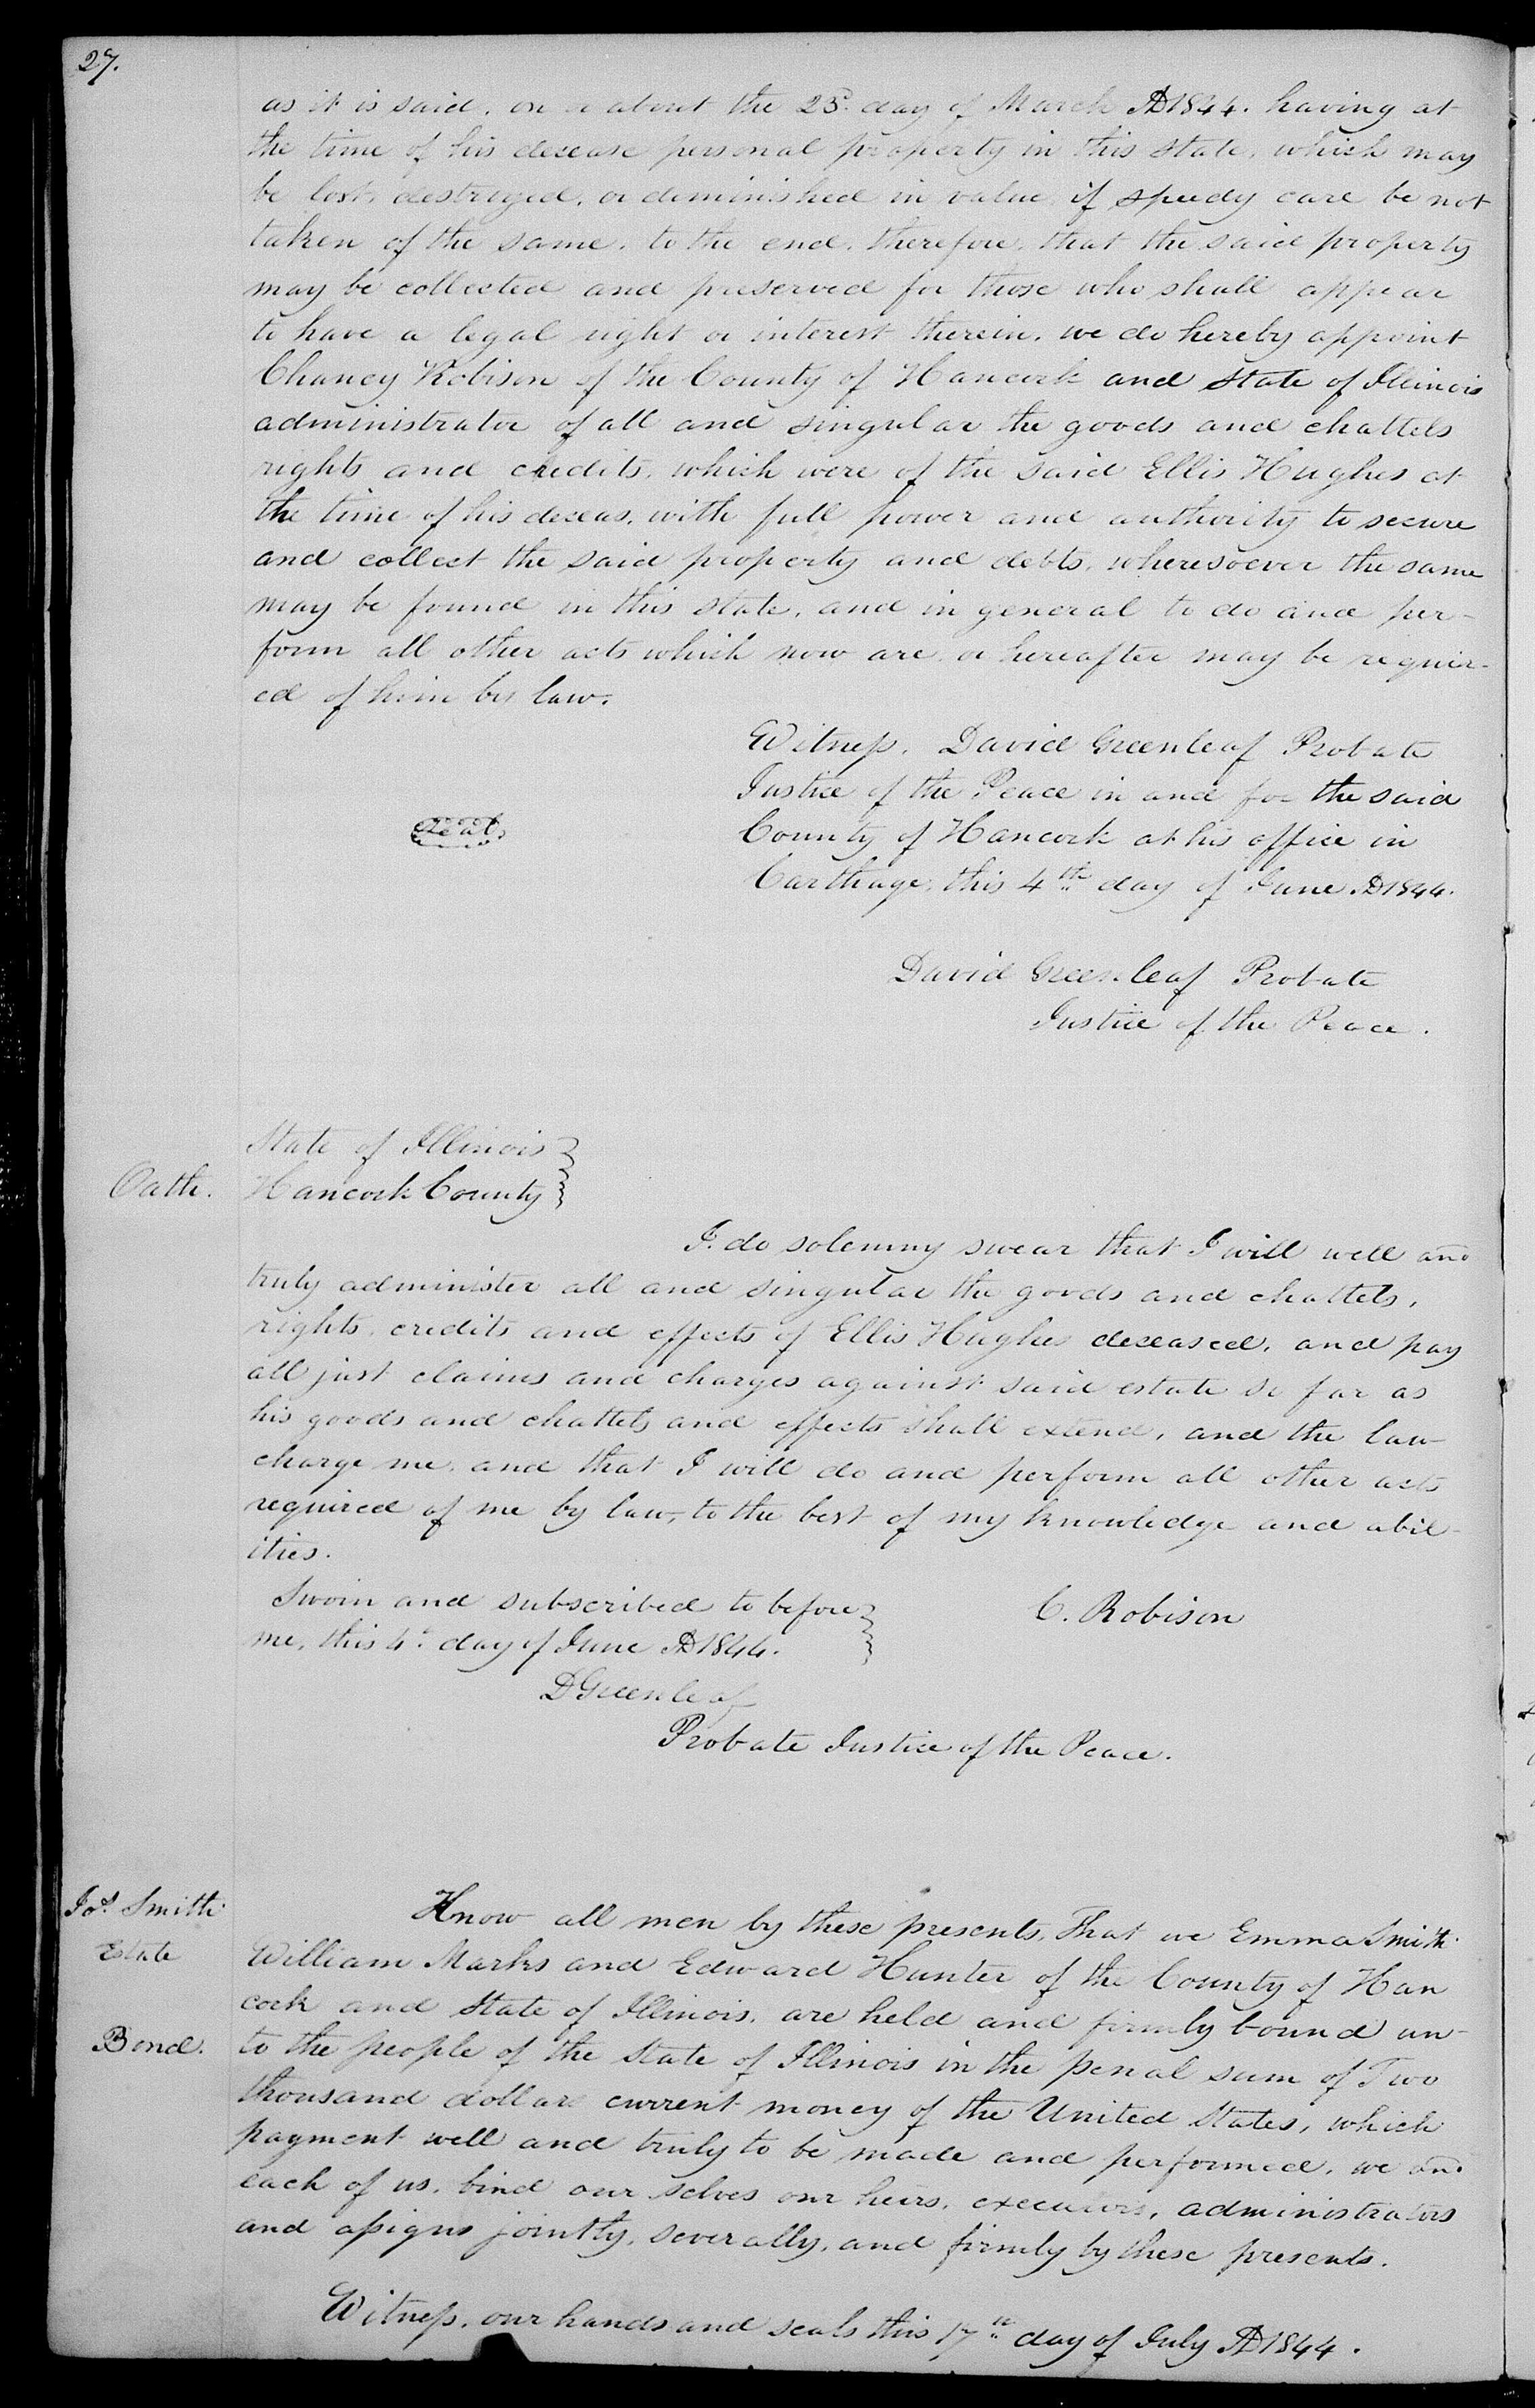 27.
as it is said, on or about the 23d. day of March AD 1844. having at
the time of his decease personal property in this state, which may
be lost, destroyed, or diminished in value, if speedy care be not
taken of the same, to the end, therefore, that the said property
may be collected and preserved for those who shall appear
to have a legal right or interest therein, we do hereby appoint
Chancy Robison of the County of Hancock and State of Illinois
administrator of all and singular the goods and chattels
rights and credits, which were of the said Ellis Hughes at
the time of his deceas, with full power and authority to secure
and collect the said property and debts, wheresoever the same
may be found in this state, and in general to do and per-
form all other acts which now are or hereafter may be requir-
ed of him by law.
Witness, David Greenleaf Probate
Justice of the Peace in and for the said
Seal
County of Hancock at his office in
Carthage, this 4th day of June AD 1844.
David Greenleaf Probate
Justice of the Peace.
State of Illinois
Oath. Hancock County
I. do solemny swear that I will well and
truly administer all and singular the goods and chattels,
rights, credits and effects of Ellis Hughes deceased, and pay
all just claims and charges against said estate so far as
his goods and chattels and effects shall extend, and the law
charge me, and that I will do and perform all other acts
required of me by law, to the best of my knowledge and abil-
ities.
Sworn and subscribed to before C. Robison
me, this 4th day of June AD 1844.
D Greenleaf
Probate Justice of the Peace.
Jos. Smith Know all men by these presents, That we Emma Smith
Estate William Marks and Edward Hunter of the County of Han
cock and State of Illinois, are held and firmly bound un-
Bond. to the people of the State of Illinois in the penal sum of Two
thousand dollars current money of the United States, which
payment well and truly to be made and performed, we and
each of us, bind our selves our heirs, executors, administrators
and assigns jointly, severally, and firmly by these presents.
Witness, our hands and seals this 17th day of July AD 1844.